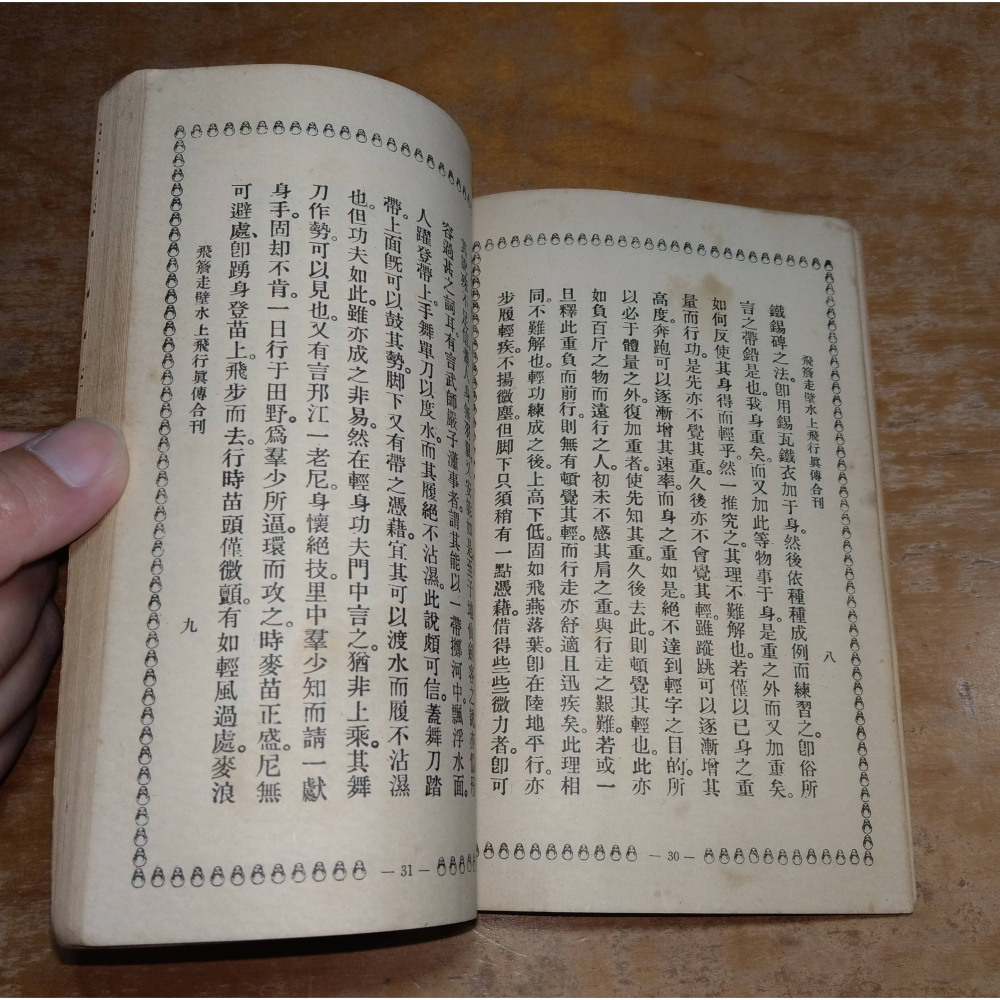 飛簷走壁水上飛行眞傳合刊
八
鐵錫碑之法。卽用錫瓦鐵衣加于身。然後依種種成例而練習之。卽俗所
言之帶鉛是也。我身重矣。而又加此等物事于身。是重之外而又加重矣。
如何反使其身得而輕乎。然一推究之。其理不難解也。若僅以已身之重
量而行功。是先亦不覺其重。久後亦不會覺其輕。雖蹤跳可以逐漸增其
高度。奔跑可以逐漸增其速率。而身之重如是。絕不達到輕字之目的。所
以必于體量之外。復加重者。使先知其重。久後去此。則頓覺其輕也。此亦
如負百斤之物而遠行之人。初未不感其肩之重與行走之艱難。若或一
且釋此重負而前行。則無有頓覺其輕。而行走亦舒適且迅疾矣。此理相
同。不難解也。輕功練成之後。上高下低。固如飛燕落葉。卽在陸地平行。亦
步履輕疾。不揚微塵。但脚下只須稍有一點憑藉。借得些些微力者。卽可
— 30 —
容過甚之詞耳。有言武師嚴子瀟事者。謂其能以一帶擲河中。飄浮水面。
人躍登帶上。手舞單刀以度水。而其履絕不沾濕。此說頗可信。蓋舞刀踏
帶。上面旣可以鼓其勢。脚下又有帶之憑藉。宜其可以渡水而履不沾濕
也。但功夫如此。雖亦成之非易。然在輕身功夫門中言之。猶非上乘。其舞
刀作勢。可以見也。又有言邗江一老尼。身懷絕技。里中羣少知而請一獻
身手。固却不肯。一日行于田野。爲羣少所逼。環而攻之。時麥苗正盛。尼無
可避處、卽踴身登苗上。飛步而去。行時苗頭僅微顫。有如輕風過處。麥浪
飛簷走壁水上飛行眞傳合刊
九
— 31 —